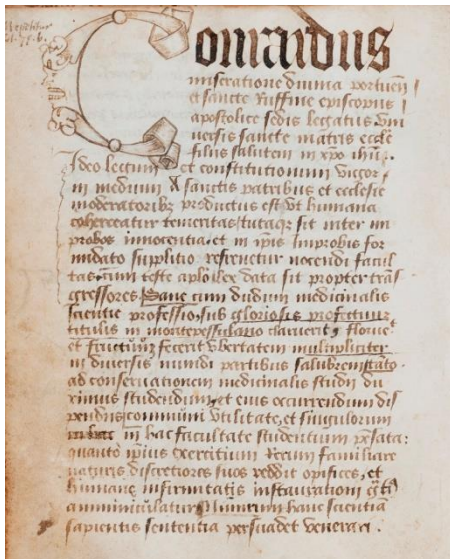 Conrardus
miseratione divina portuen
et sancte Ruffine episcopus
apostolice sedis legatus Uni
versis sancte matris eccle
filiis salutem in xpo ihu.
Ideo legum et constitutionum vigor
in medium A sanctis patribus et ecclesie
moderatoribz productus est vt humana
coherceatur temeritas, tutaqz sit inter im
probos innocentia, et in ipis Improbis for
midato supplitio refrenetur nocendi facul
tas. cum teste aplo lex data sit propter trans
gressores. Sane cum dudum medicinalis
scientie professio, sub gloriosis profectuum
titulis in montepessulano claruerit, floruerit
et fructuum fecerit vbertatem multipliciter
in diversis mundi partibus salubrem
ad conservationem medicinalis studii du
ximus studendum, et eius occurrendum dis
pendiis communi vtilitate, et singulorum
in hac facultate studentium pensata:
quanto ipius exercitium Rerum familiare
naturis discretiores suos reddit opifices, et
humane infirmitatis instaurationi
amminiculatur honorum hanc scientia
sapientis sententia persuadet venerari.